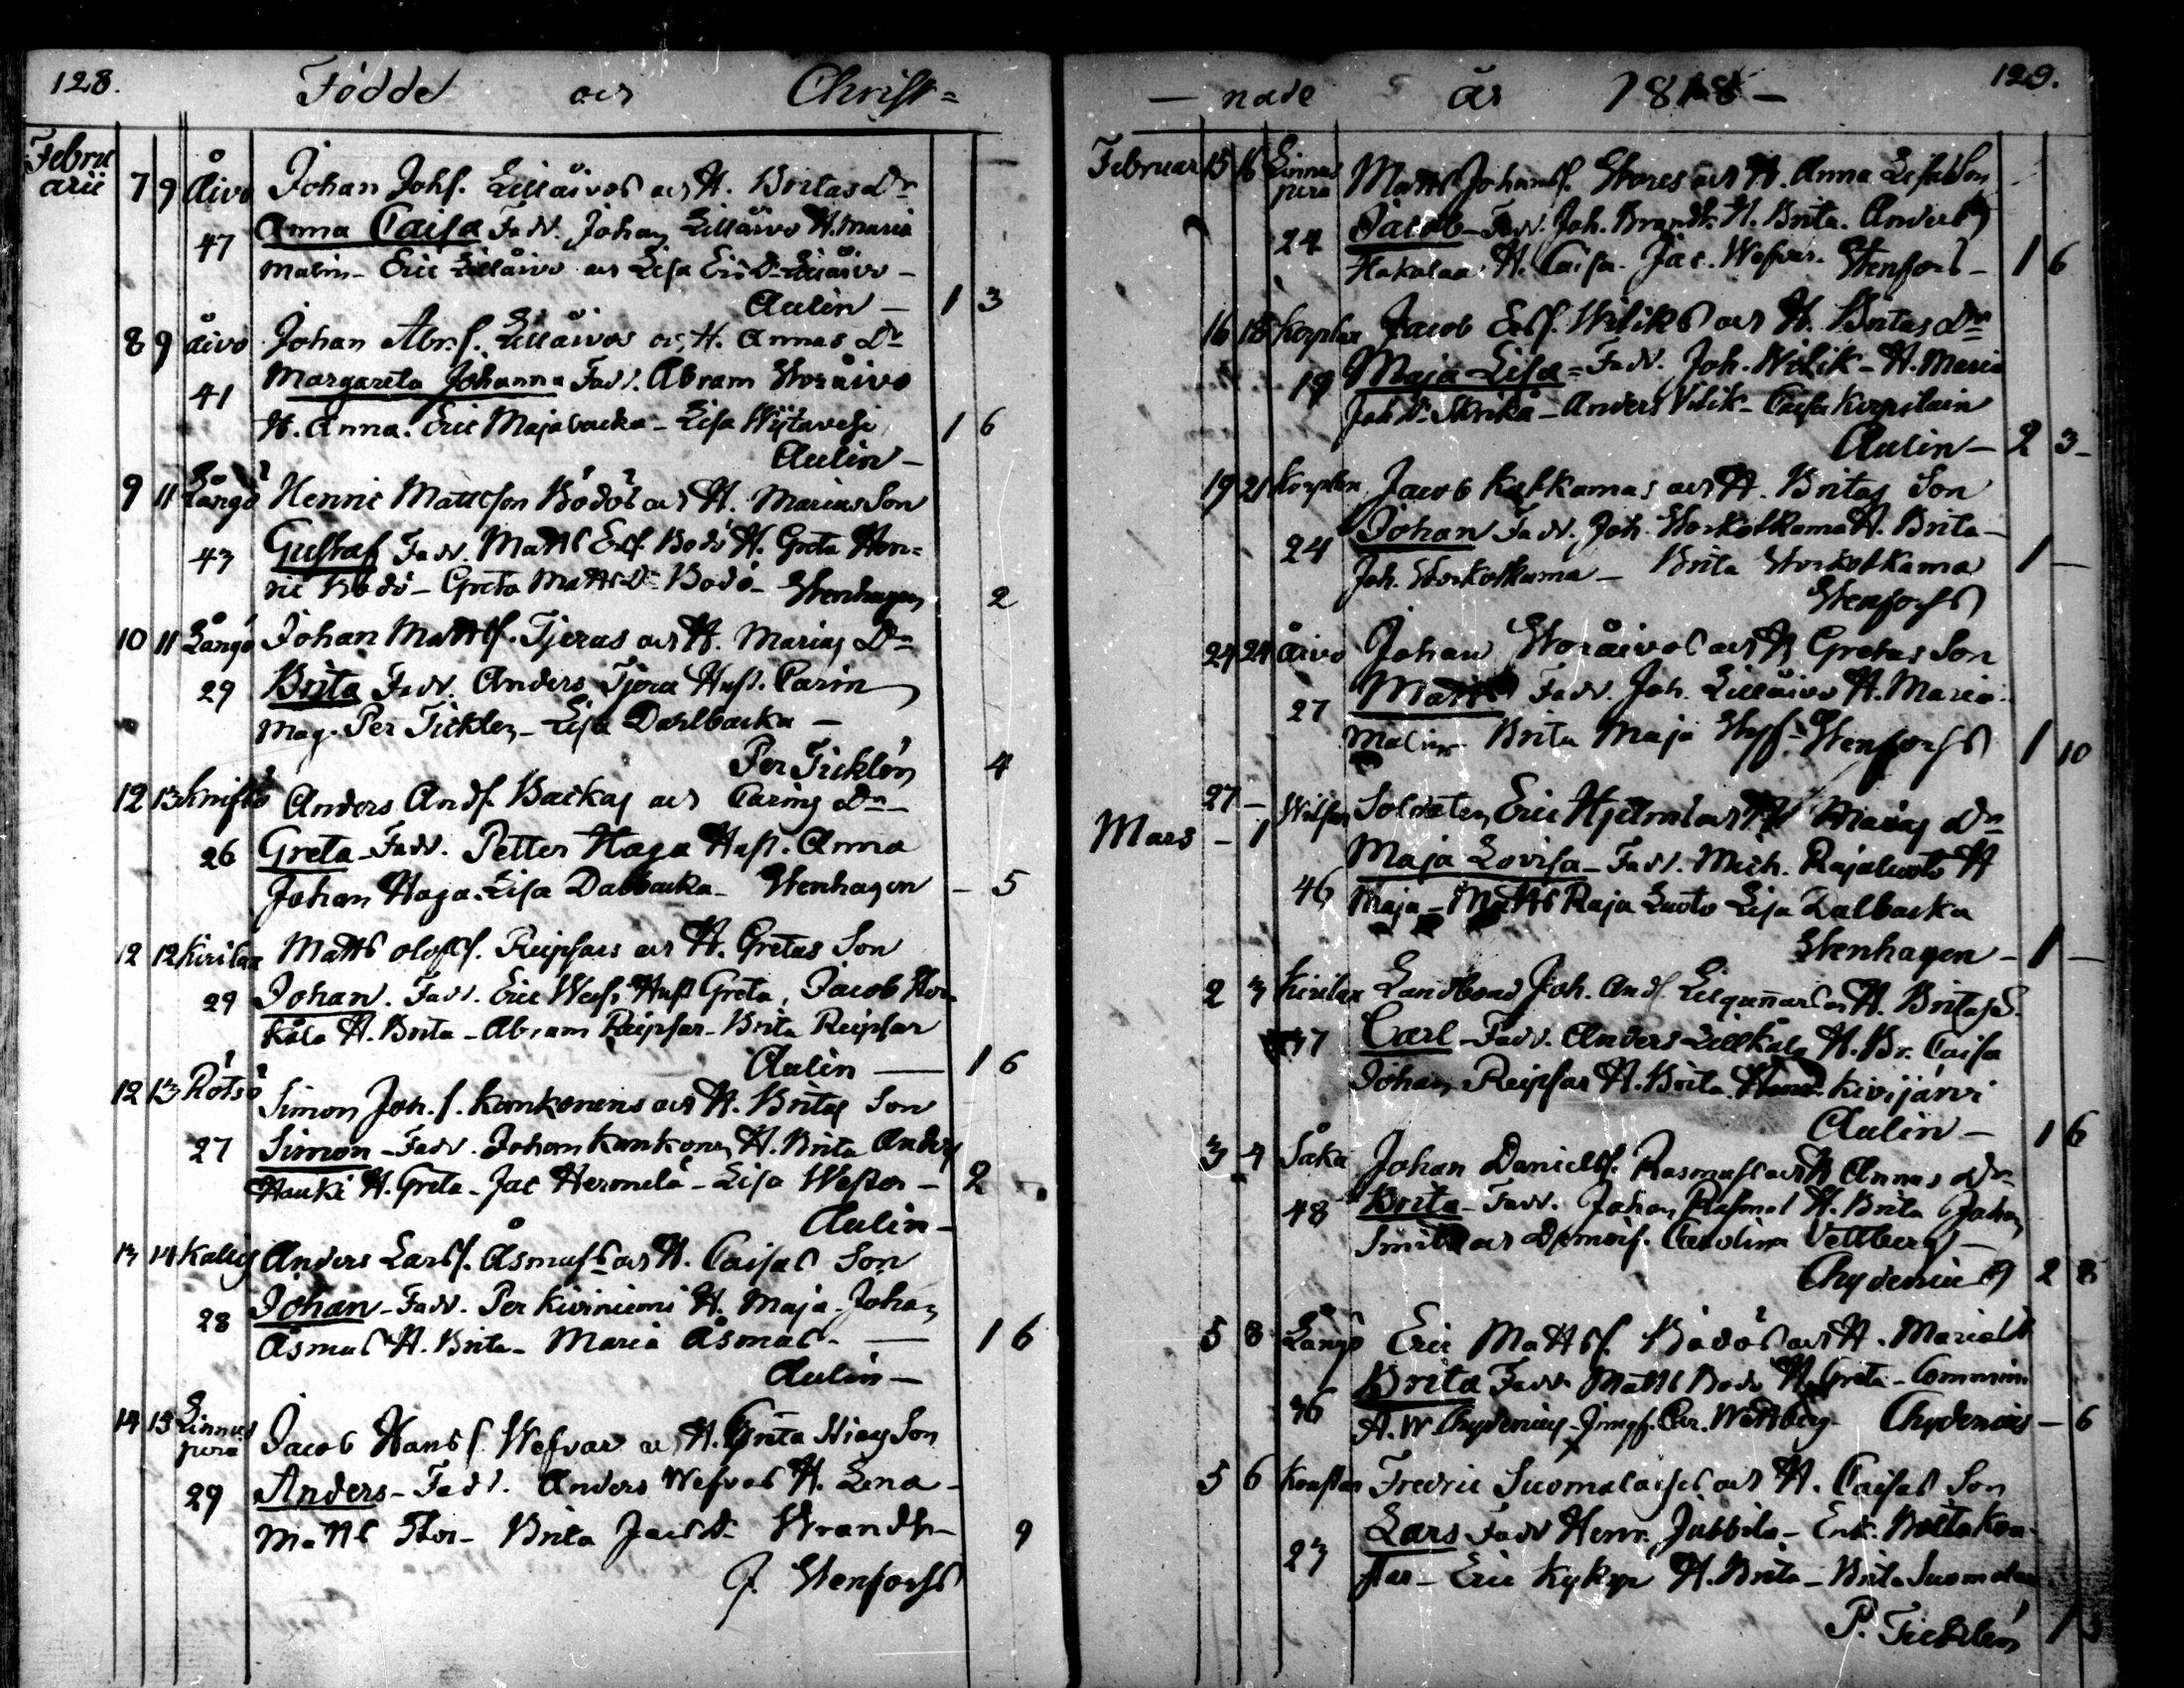 128.
Födde och Christ=
Febru
arii 7 9 Åivo Johan Johs. Lillåivos och H. Britas Dr
47 Anna Caisa Fadd. Johan Lillåivo H. Maria
Malin - Eric Lillåivo och Lisa Ers Dr Lillåivo -
Aulin - 1 3
8 9 åivo Johan Abr. s. Lillåivos och H. Annas Dr
41 Margareta Johanna Fadd. Abram Storåivo
H. Anna. Eric Majabacka - Lisa Wijtavesi 1 6
Aulin -
9 11 Långö Henric Mattsson Bodös och H. Marias Son
43 Gustaf Fadd. Matts Ers. Bodö H. Greta Hen=
ric Bodö - Greta Matts Dr Bodö - Stenhagen 2
10 11 Långö Johan Mattss. Tjeras och H. Marias Dr
29 Brita Fadd. Anders Tjera Hust. Carin
Mag. Per Ticklen - Lisa Dahlbacka -
Per Ticklén 4
12 13 Knifsö Anders Ands. Backas och Carins Dr
26 Greta - Fadd. Petter Haga Hust. Anna
Johan Haga. Lisa Dalbacka - Stenhagen - 5
12 12 Kirilax Matts Olofss. Reipsars och H. Gretas Son
29 Johan. Fadd. Eric Hust Greta, Jacob Stor
kåla H. Brita - Abram Reipsar - Brita Reipsar
Aulin - 1 6
12 13 Rotsö Simon Joh. s. Kankonens och H. Britas Son
27 Simon - Fadd. Johan Kankonen H. Brita Anders
Hauki H. Greta - Jac Hermelä - Lisa Wester - 2
Aulin -
13 14 Kallis Anders Larss. Åsmuss och H. Caisas Son
28 Johan - Fadd. Per Kiviniemi H. Maja - Johan
Åsmus H. Brita - Maria Åsmas - 1 6
Aulin -
14 15 Linnus
pera Jacob Hanss. Wefvar och H. Son
29 Anders - Fadd. Anders Wefvas H. Lena -
Matts Stor - Brita Jacs Dr 9
J. Stenforss
129.
- nade år 1818 -
Februar 15 16 Linnus
pera Matts Johanss. Stores och H. Anna Lisas Son
24 Jacob - Fadd. Joh. Brandt. H. Brita. Anders
Hakalax H. Caisa. Jac. Wefvar. Stenfors - 1 6
16 18 Korplax Jacob Ers. Wiliks och H. Britas Dr
19 Maja Lisa = Fadd. Joh. Wilik - H. Maria
Joh Dr - Anders Vilik - Caisa
Aulin - 2 3 -
19 21 Korplax Jacob Kalkamas och H. Britas Son
24 Johan Fadd. Joh. Storkolkama H. Brita -
Joh. Storkolkama - Brita Storkolkama 1 -
Stenforss
24 24 åivo Johan Storåivos och H Gretas Son
27 Matts Fadd. Joh. Lillåivo H. Maria.
Malin - Brita Maja Stenforss 1 10
27 - Soldaten Eric Hjelms och H Marias Dr
Mars - 1
46 Maja Lovisa - Fadd. Mich. Rajaluoto H
Maja - Matts Raja Luoto Lisa Dalbacka
Stenhagen - 1 -
2 3 Kirilax Landbond Joh. Ands. H. Britas S.
37 Carl - Fadd. Anders Lillkåla H. Br. Caisa
Johan Reipsar H. Brita. Kivijärvi
Aulin - 1 6
3 4 Såka Johan Danielss. Rasmuss och H Annas Dr
48 Brita - Fadd. Johan Rasmus H. Brita Johan
Smit och Demois. Carolina Vettberg -
Chydenius 2 8
5 8 Långö Eric Mattss. Bodös och H. Marias D
36 Brita Fadd. Matts Bodö H. Greta - Commin.
A. W. Chydenius - Jungf. Car. Wettberg. Chydenius - 6
5 6 Fredric Suomalaises och H. Caisas Son
23 Lars Fadd Henr. Jubbila - Enk.
Eric Kykyr H. Brita - Brita Suomala
P. Ticklén 1